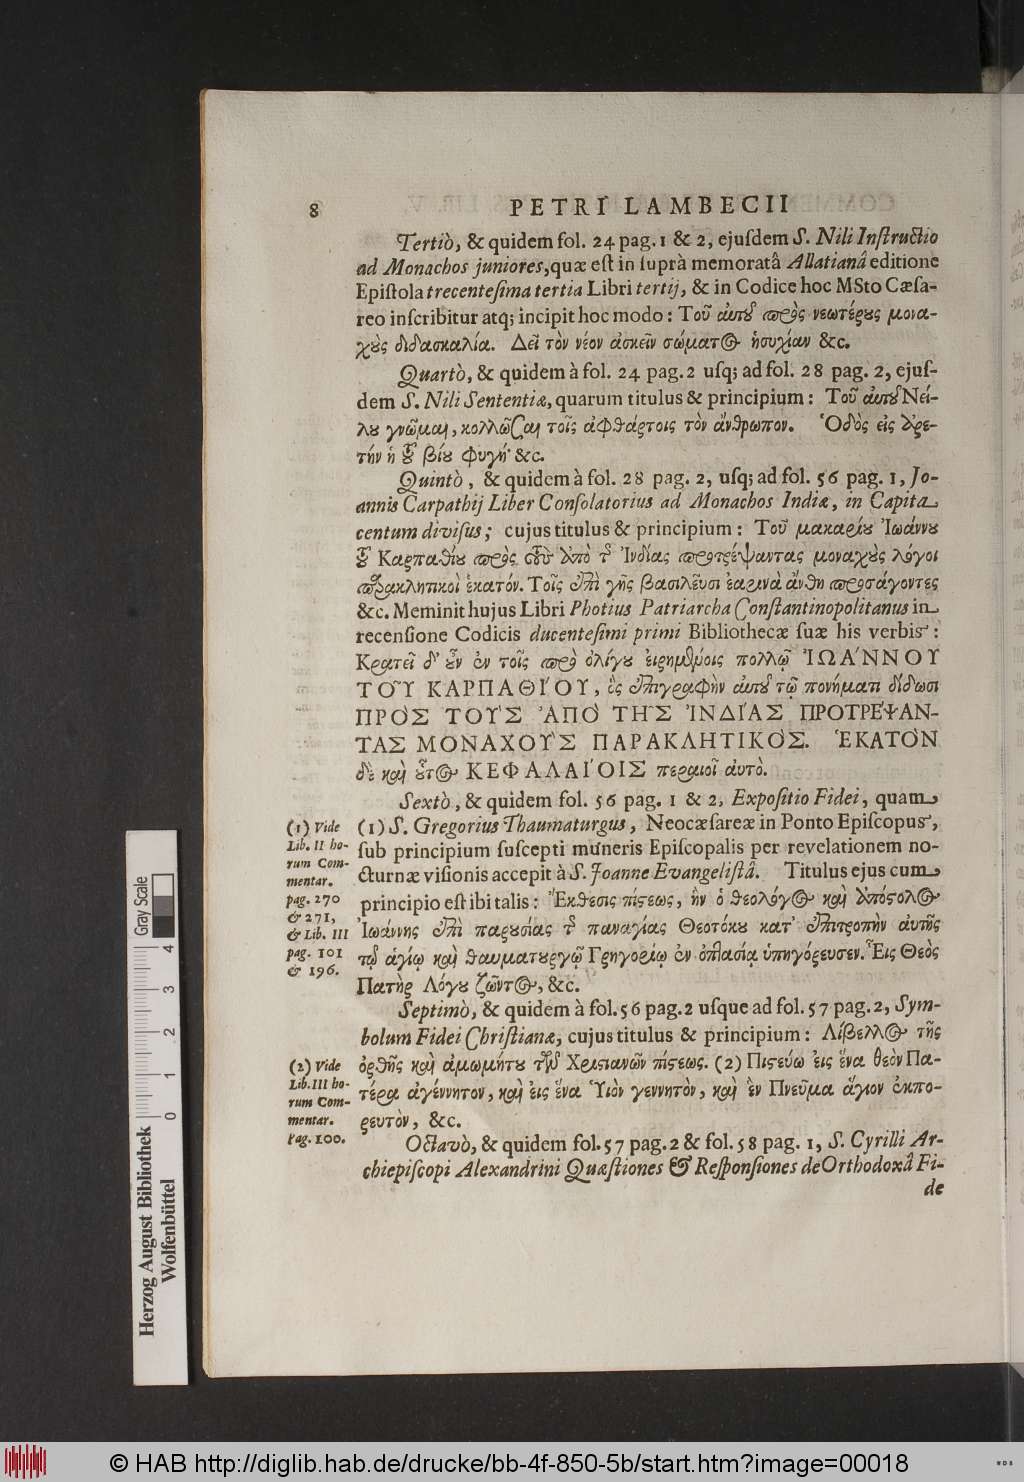 8 PETRI LAMBECII
Tertiò, & quidem fol. 24 pag. 1 & 2, ejuſdem S. Nili Inſtructio
ad Monachos juniores, quæ eſt in ſuprà memoratâ Allatianâ editione
Epiſtola trecenteſima tertia Libri tertij, & in Codice hoc MSto Cæſa-
reo inſcribitur atq; incipit hoc modo: Τοῦ αὐτοῦ πρὸς νεωτέρους μονα-
χοὺς διδασκαλία. Δεῖ τὸν νέον ἀσκεῖν σώματος ἡσυχίαν &c.
Quartò, & quidem à fol. 24 pag. 2 uſq; ad fol. 28 pag. 2, ejuſ-
dem S. Nili Sententiæ, quarum titulus & principium: Τοῦ αὐτοῦ Νεί-
λου γνῶμαι, κολλῶσαι τοῖς ἀφθάρτοις τὸν ἄνθρωπον. Ὁδὸς εἰς ἀρε-
τήν ἡ τοῦ βίου φυγή &c.
Quintò, & quidem à fol. 28 pag. 2, uſq; ad fol. 56 pag. 1, Jo-
annis Carpathij Liber Conſolatorius ad Monachos Indiæ, in Capita
centum diviſus; cujus titulus & principium: Τοῦ μακαρίου Ἰωάννου
τοῦ Καρπαθίου πρὸς τοὺς ἀπὸ τῆς Ἰνδίας προτρέψαντας μοναχοὺς λόγοι
παρακλητικοὶ ἑκατόν. Τοῖς ἐπὶ γῆς βασιλεῦσι ἐαρινὰ ἄνθη προσάγοντες
&c. Meminit hujus Libri Photius Patriarcha Conſtantinopolitanus in
recenſione Codicis ducenteſimi primi Bibliothecæ ſuæ his verbis:
Κρατεῖ δ' οὖν ἐν τοῖς πρὸ ὀλίγου εἰρημένοις πολλῷ ἸΩΆΝΝΟΥ
ΤΟΥ͂ ΚΑΡΠΑΘΊΟΥ, ὃς ἐπιγραφὴν αὐτοῦ τῷ πονήματι δίδωσι
ΠΡῸΣ ΤΟῪΣ ἈΠῸ ΤΗ͂Σ ἸΝΔΊΑΣ ΠΡΟΤΡΈΨΑΝ-
ΤΑΣ ΜΟΝΑΧΟῪΣ ΠΑΡΑΚΛΗΤΙΚῸΣ. ἙΚΑΤῸΝ
δὲ καὶ οὗτος ΚΕΦΑΛΑΊΟΙΣ περαιοῖ αὐτὸ.
Sextò, & quidem fol. 56 pag. 1 & 2, Expoſitio Fidei, quam
(1) S. Gregorius Thaumaturgus, Neocæſareæ in Ponto Epiſcopus,
ſub principium ſuſcepti muneris Epiſcopalis per revelationem no-
cturnæ viſionis accepit à S. Joanne Evangeliſtâ. Titulus ejus cum
principio eſt ibi talis: Ἔκθεσις πίστεως, ἣν ὁ θεολόγος καὶ ἀπόστολος
Ἰωάννης ἐπὶ παρουσίας τῆς παναγίας Θεοτόκου κατ' ἐπιτροπὴν αὐτῆς
τῷ ἁγίῳ καὶ θαυματουργῷ Γρηγορίῳ ἐν ὀπτασίᾳ ὑπηγόρευσεν. Εἷς Θεὸς
Πατὴρ Λόγου ζῶντος, &c.
Septimò, & quidem à fol. 56 pag. 2 uſque ad fol. 57 pag. 2, Sym-
bolum Fidei Chriſtianæ, cujus titulus & principium: Λίβελλος τῆς
ὀρθῆς καὶ ἀμωμήτου τῶν Χριστιανῶν πίστεως. (2) Πιστεύω εἰς ἕνα θεὸν Πα-
τέρα ἀγέννητον, καὶ εἰς ἕνα Ὑιὸν γεννητὸν, καὶ ἓν Πνεῦμα ἅγιον ἐκπο-
ρευτὸν, &c.
Octavò, & quidem fol. 57 pag. 2 & fol. 58 pag. 1, S. Cyrilli Ar-
chiepiſcopi Alexandrini Quæſtiones & Reſponſiones de Orthodoxâ Fi-
de
(1) Vide
Lib. II ho-
rum Com-
mentar.
pag. 270
& 271,
& Lib. III
pag. 101
& 196.
(2) Vide
Lib. III ho-
rum Com-
mentar.
pag. 100.
Gray Scale
0 1 2 3 4
Herzog August Bibliothek
Wolfenbüttel
© HAB http://diglib.hab.de/drucke/bb-4f-850-5b/start.htm?image=00018